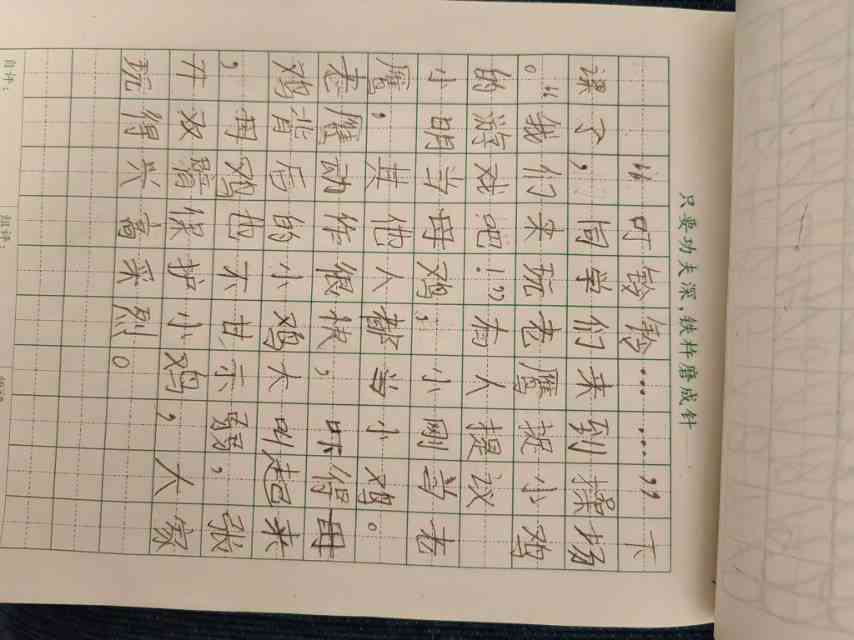 只要功夫深，铁杵磨成针
“叮铃铃……”下
课了，同学们来到操场
。“我们来玩老鹰捉小鸡
的游戏吧！”有人提议
小明当母鸡，小刚当老
鹰，其他人都当小鸡。
老鹰动作很快，吓得母
鸡背后的小鸡大叫起来
，母鸡也不甘示弱，张
开双臂保护小鸡，大家
玩得兴高采烈。
自评：
组评：